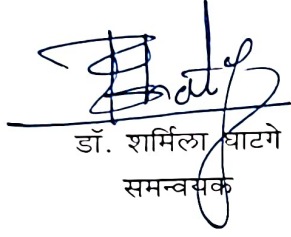 डॉ. शर्मिला घाटगे
समन्वयक